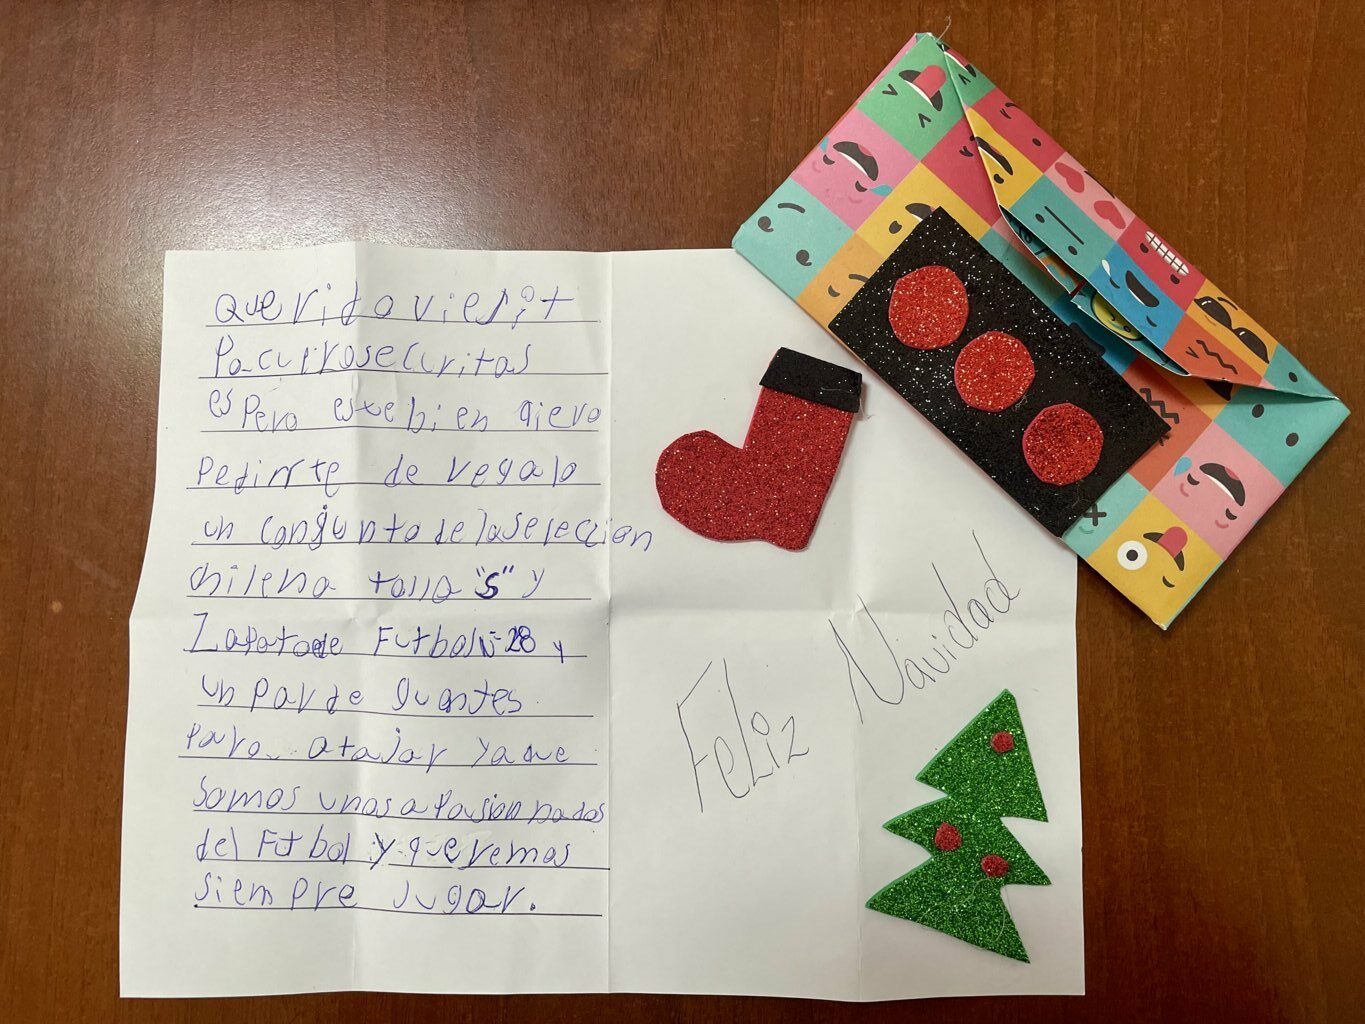 Querido viejit
Pacurrosecuritas
espero estebien qiero
Pedirrte de regalo
un conjunto de laselección
chilena talla "S" y
Zapatode Futbol N-28 y
un par de guantes
para atajar yaque
Somos unos apasionados
del Futbol y queremos
siempre Jugar.
Feliz Navidad